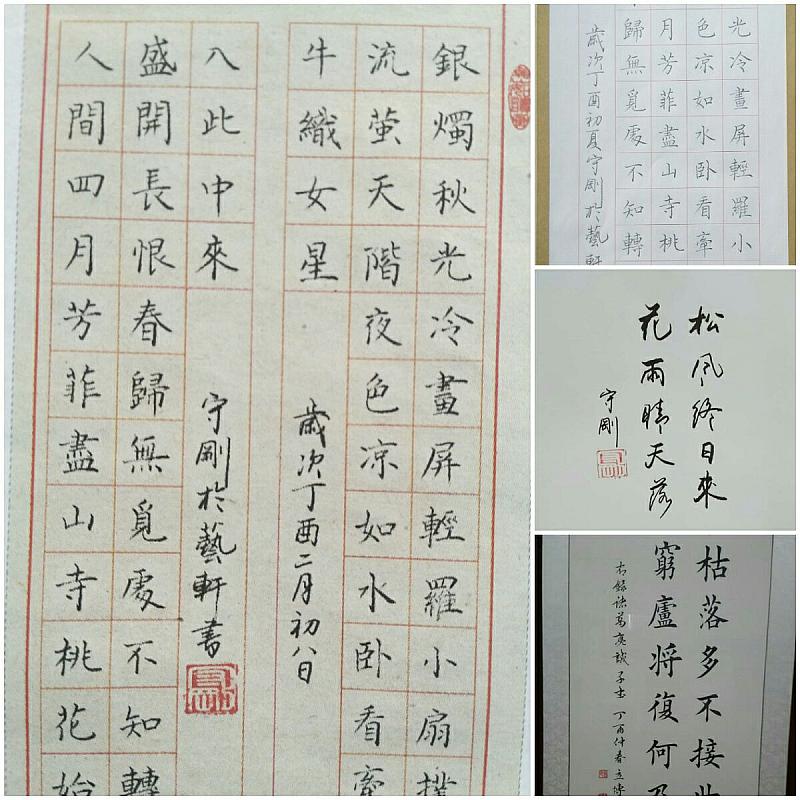 銀燭秋光冷畫屏輕羅小扇撲
流萤天階夜色凉如水卧看牽
牛織女星
歲次丁酉二月初八日
人間四月芳菲盡山寺桃花始
盛開長恨春歸無覓處不知轉
入此中來
守剛於藝軒書
光冷畫屏輕羅小
色凉如水卧看牽
月芳菲盡山寺桃
歸無覓處不知轉
歲次丁酉初夏守剛於藝軒
松風終日來
花雨晴天落
守剛
枯落多不接世
窮廬將復何及
右錄諸葛亮誡子書 丁酉仲春